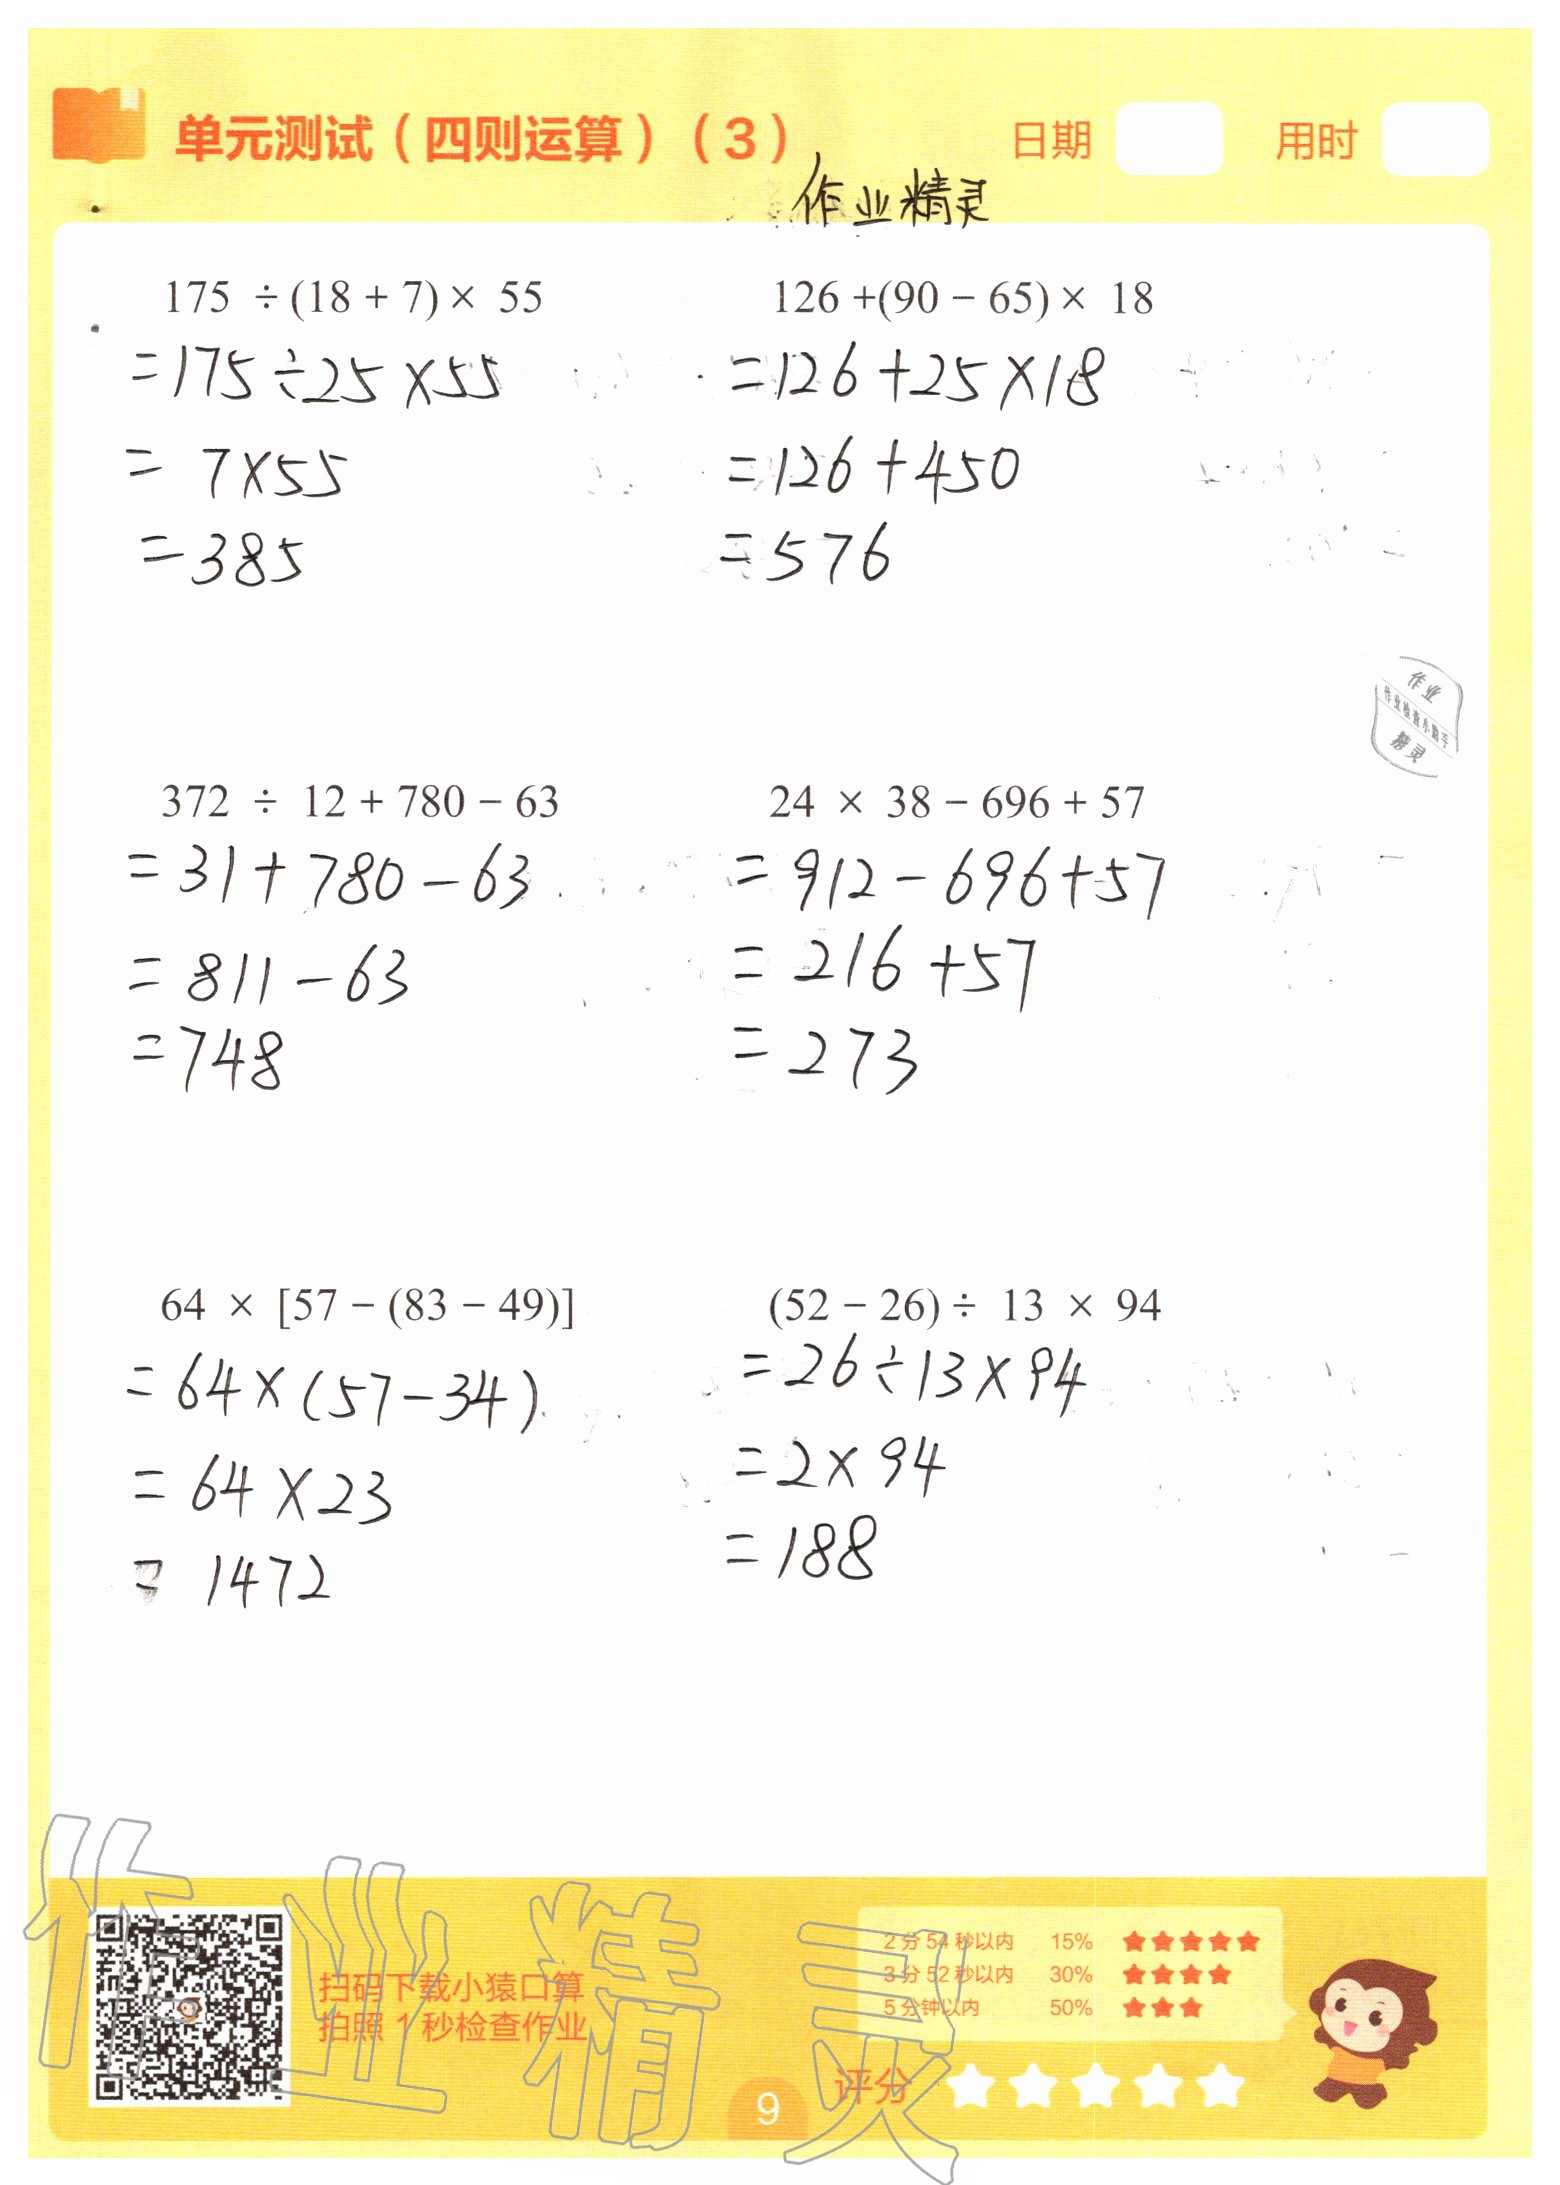 单元测试（四则运算）（3） 日期 用时
作业精灵
175 ÷ (18 + 7) × 55
=175÷25×55
= 7×55
=385
126 +(90 − 65) × 18
=126+25×18
=126+450
=576
作业
作业检查小助手
精灵
372 ÷ 12 + 780 − 63
=31+780−63
=811−63
=748
24 × 38 − 696 + 57
=912−696+57
=216+57
=273
64 × [57 − (83 − 49)]
=64×(57−34)
=64×23
=1472
(52 − 26) ÷ 13 × 94
=26÷13×94
=2×94
=188
扫码下载小猿口算
拍照 1 秒检查作业
2 分 54 秒以内 15%
3 分 52 秒以内 30%
5 分钟以内 50%
评分
9
作业精灵